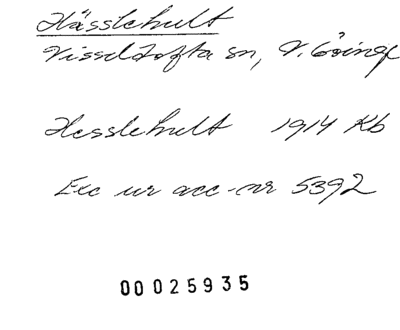 Hässlehult
Visseltofta sn, V. Göinge
Hesslehult 1914 Kb
Exc ur acc-nr 5392
00025935